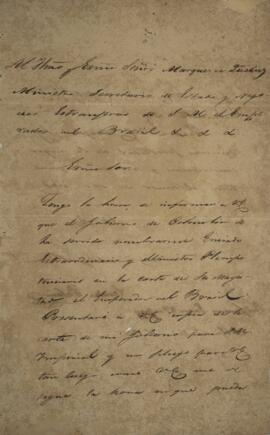 Al Ilmo y Exmo Señor Marques
Ministro Secretario de Estado y Nego
cios Estrangeros de S. M. el Empe
rador del Brasil
Exmo Sor
Tengo la honra de informar a VE
que el Gobierno de Colombia
ha servido nombrarme Enviado
Extraordinario y Ministro Plenipo
tenciario en la corte de Su Mages
tad el Emperador del Brasil
Presentaré a VE copia de la
carta de mi Gobierno para SM
Imperial y un pliego para VE
tan luego como VE me de
signe la hora en que pueda